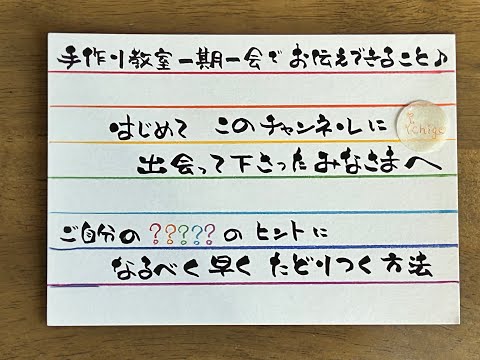 手作り教室一期一会でお伝えできること♪
はじめて このチャンネルに
ichigo
出会って下さったみなさまへ
ご自分の ????? の ヒントに
なるべく早く たどりつく方法